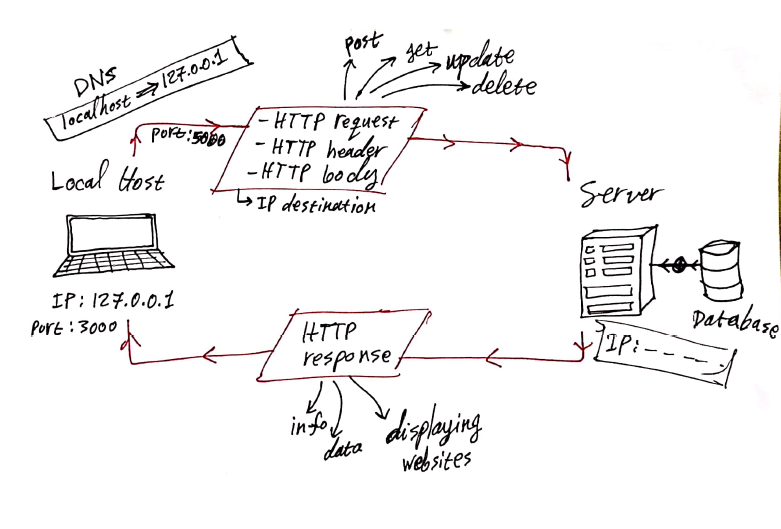 DNS
localhost ⇒ 127.0.0.1
post
get
update
delete
port: 5000
- HTTP request
- HTTP header
- HTTP body
IP destination
Local Host
IP: 127.0.0.1
port: 3000
Server
Database
IP: - - - - -
HTTP
response
info
data
displaying
websites